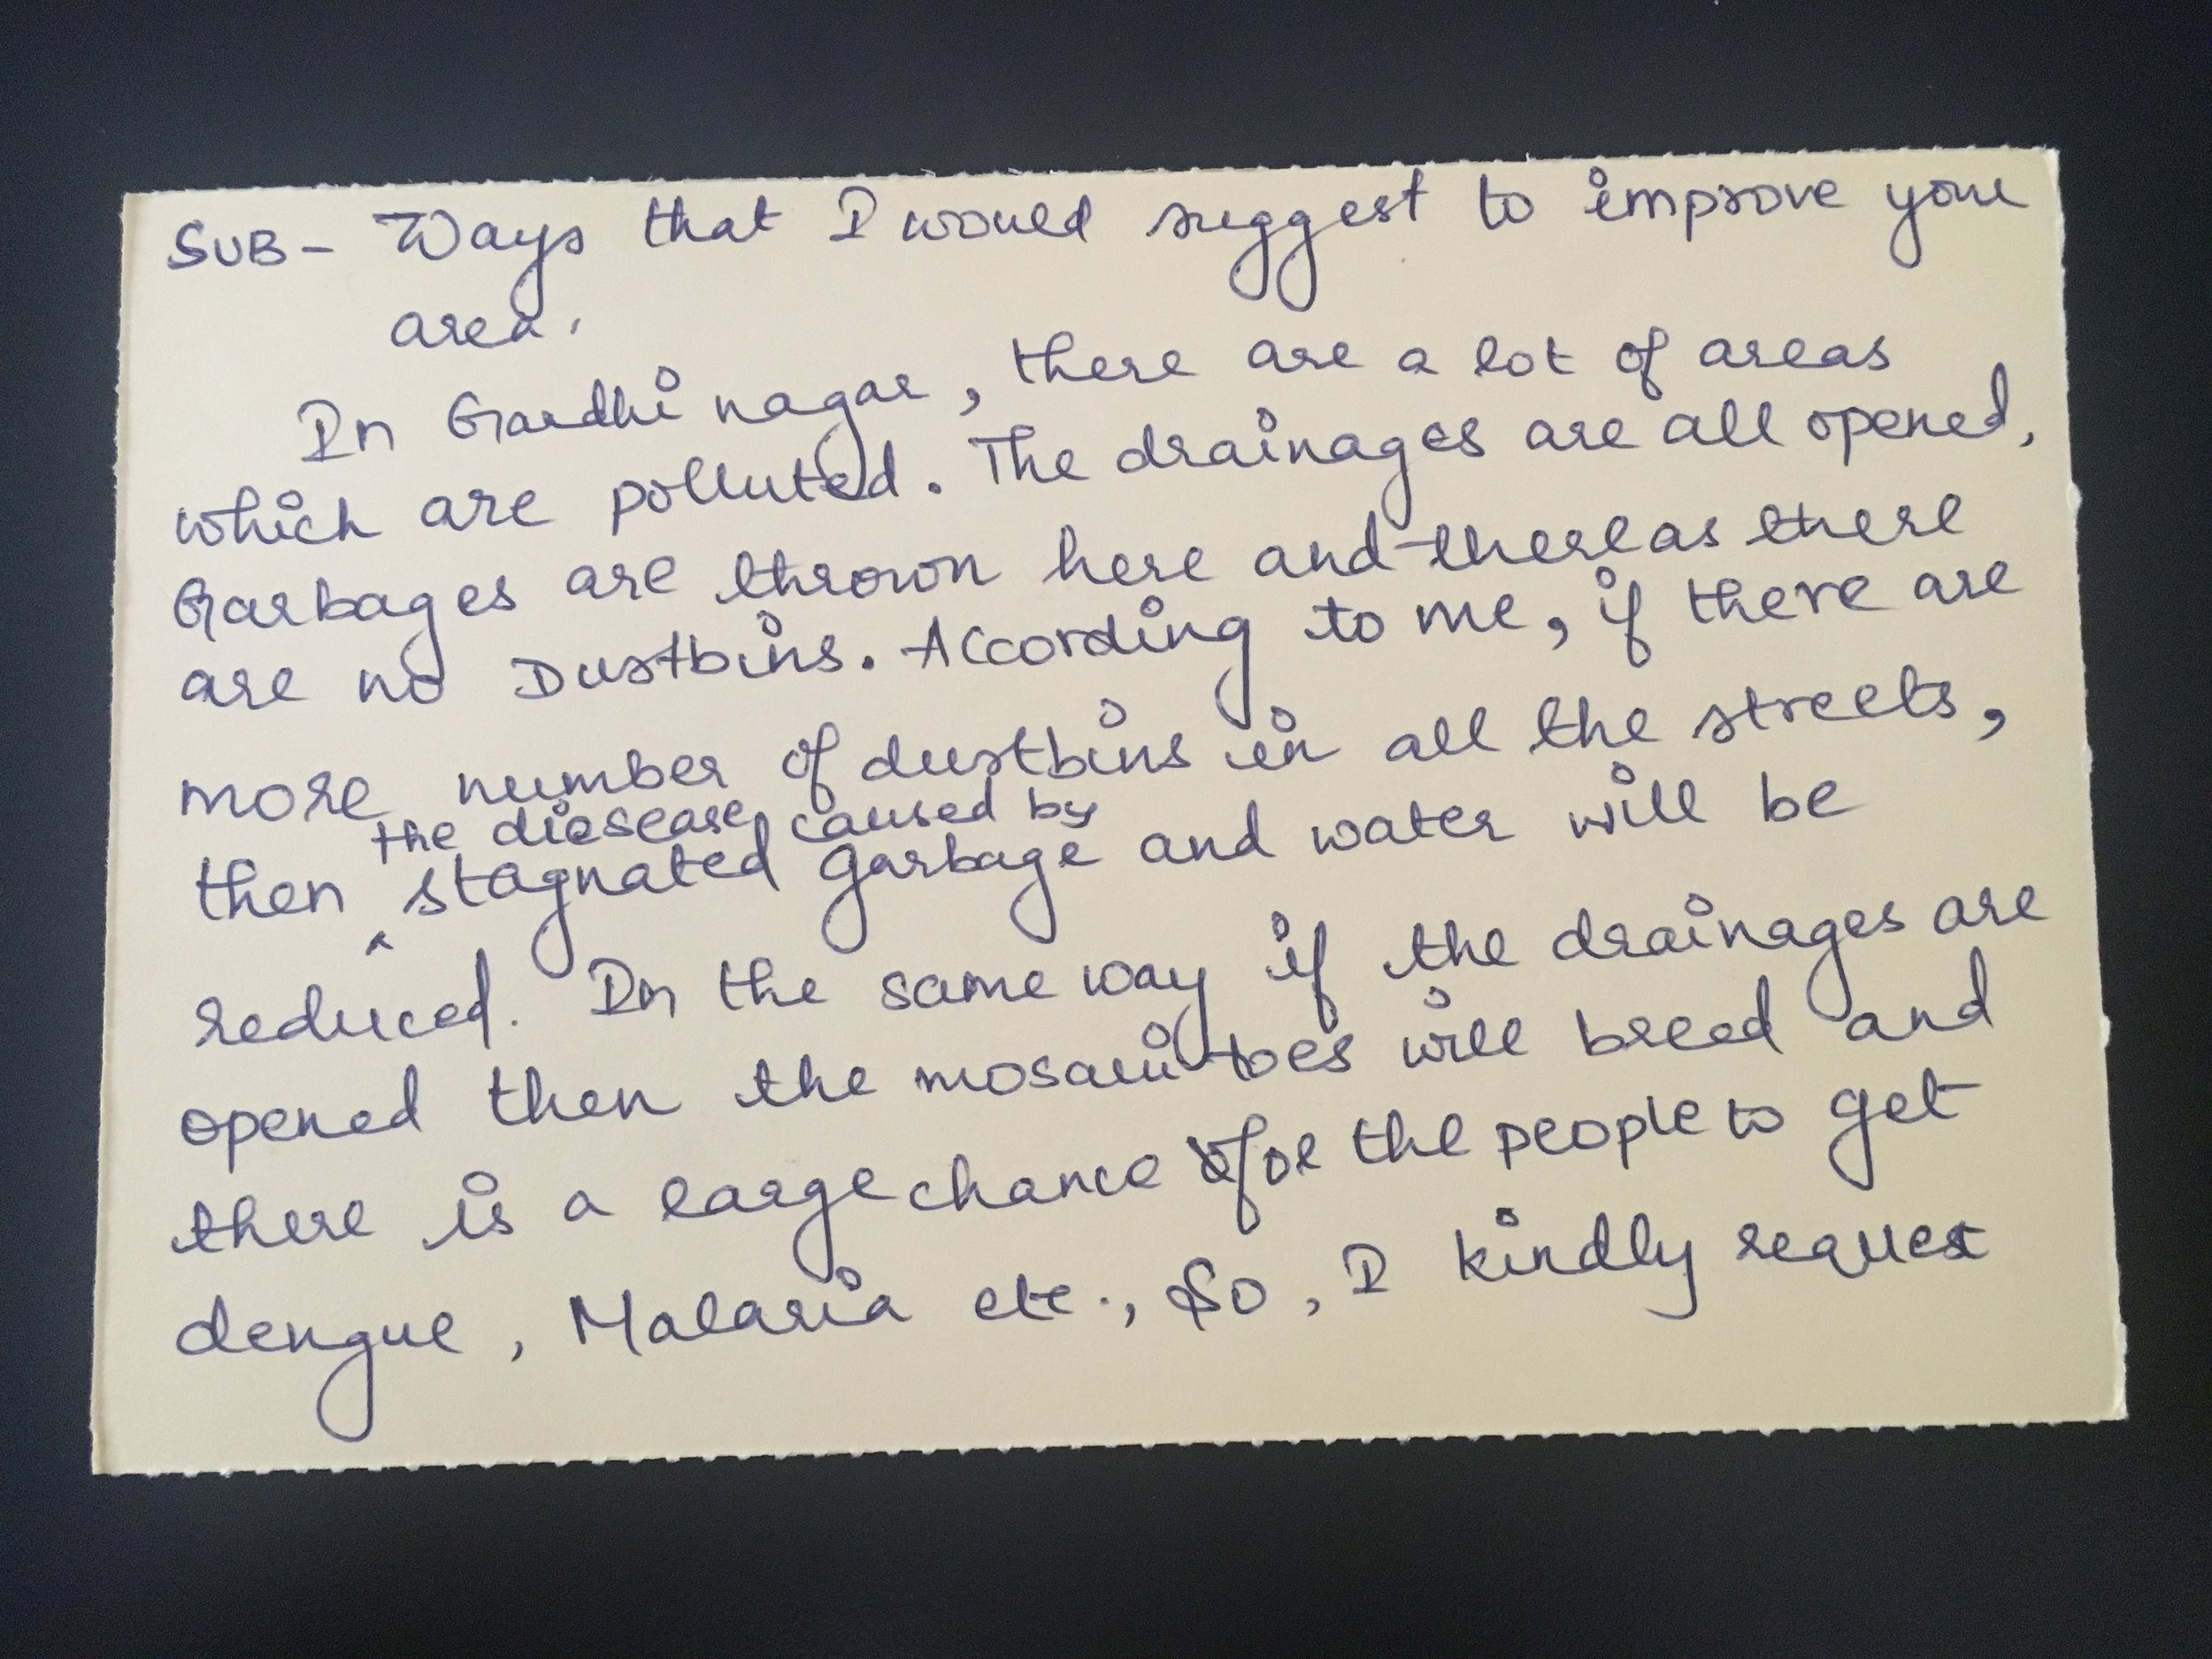 SUB- Ways that I would suggest to improve your
area.
In Gandhi nagar, there are a lot of areas
which are polluted. The drainages are all opened,
Garbages are thrown here and there as there
are no Dustbins. According to me, if there are
more number of dustbins in all the streets,
the diesease caused by
then ^ stagnated garbage and water will be
reduced. In the same way if the drainages are
opened then the mosquitoes will breed and
there is a large chance for the people to get
dengue, Malaria etc., So, I kindly request